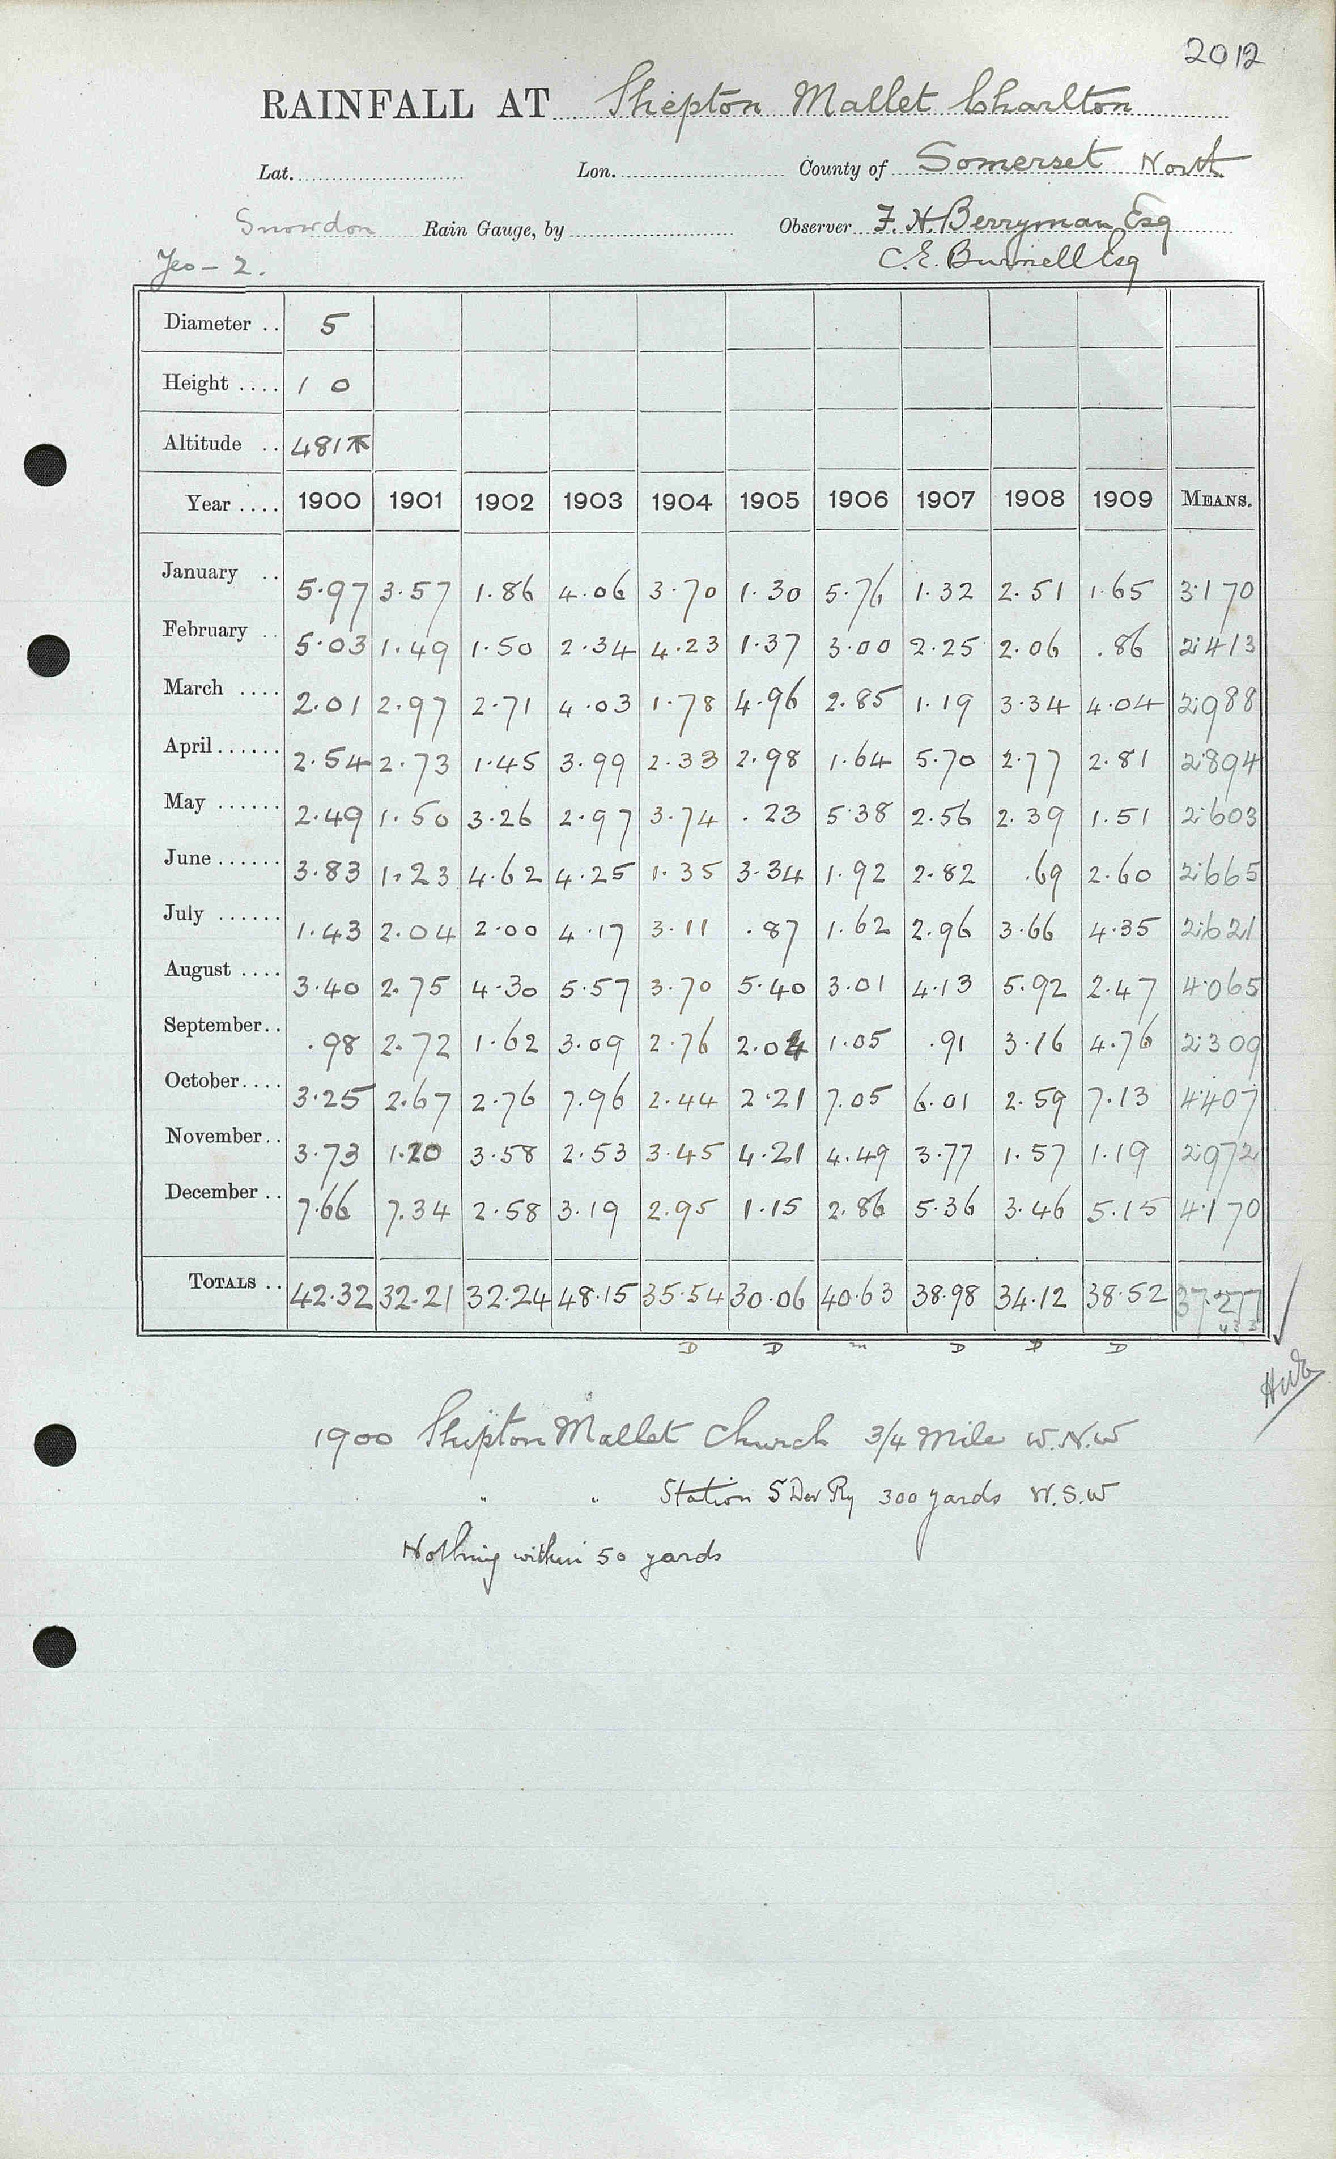 2012
RAINFALL AT Shepton Mallet Charlton
Lat. Lon. County of Somerset North
Snowdon Rain Gauge, by Observer F. H. Berryman Esq
Yeo - 2. C. E. Burnell Esq
Diameter .. 5
Height .... 1 0
Altitude .. 481
Year .... 1900 1901 1902 1903 1904 1905 1906 1907 1908 1909 MEANS.
January .. 5.97 3.57 1.86 4.06 3.70 1.30 5.76 1.32 2.51 1.65 3.170
February .. 5.03 1.49 1.50 2.34 4.23 1.37 3.00 2.25 2.06 .86 2.413
March .... 2.01 2.97 2.71 4.03 1.78 4.96 2.85 1.19 3.34 4.04 2.988
April ...... 2.54 2.73 1.45 3.99 2.33 2.98 1.64 5.70 2.77 2.81 2.894
May ...... 2.49 1.50 3.26 2.97 3.74 .23 5.38 2.56 2.39 1.51 2.603
June ...... 3.83 1.23 4.62 4.25 1.35 3.34 1.92 2.82 .69 2.60 2.665
July ...... 1.43 2.04 2.00 4.17 3.11 .87 1.62 2.96 3.66 4.35 2.621
August .... 3.40 2.75 4.30 5.57 3.70 5.40 3.01 4.13 5.92 2.47 4.065
September .. .98 2.72 1.62 3.09 2.76 2.04 1.05 .91 3.16 4.76 2.309
October .... 3.25 2.67 2.76 7.96 2.44 2.21 7.05 6.01 2.59 7.13 4.407
November .. 3.73 1.20 3.58 2.53 3.45 4.21 4.49 3.77 1.57 1.19 2.972
December .. 7.66 7.34 2.58 3.19 2.95 1.15 2.86 5.36 3.46 5.15 4.170
TOTALS .. 42.32 32.21 32.24 48.15 35.54 30.06 40.63 38.98 34.12 38.52 37.277
D D m D D D
1900 Shepton Mallet Church 3/4 Mile W.N.W
" " Station S Dev Ry 300 yards W.S.W
Nothing within 50 yards